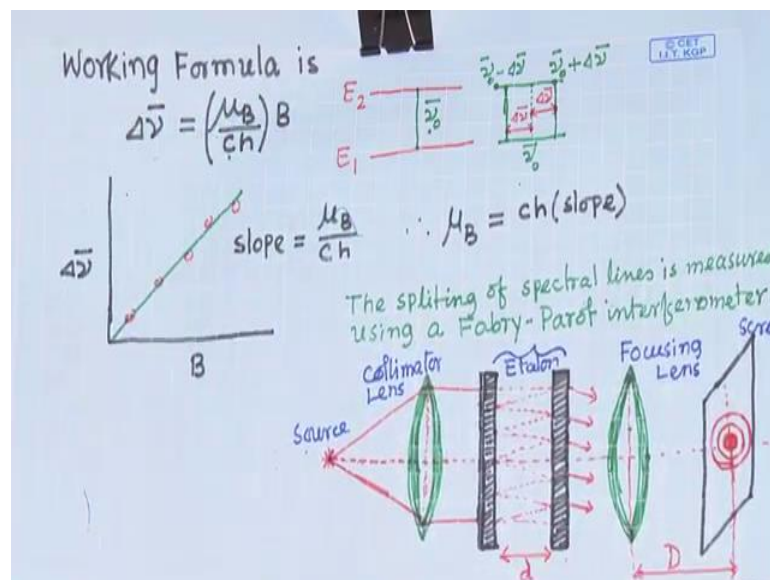 © CET
I.I.T. KGP
Working Formula is
Δν̄ = (μ_B/ch) B
E₂
E₁
ν̄₀
ν̄₀-Δν̄
ν̄₀+Δν̄
Δν̄
Δν̄
ν̄₀
Δν̄
B
slope = μ_B/ch
∴ μ_B = ch(slope)
The spliting of spectral lines is measured
using a Fabry-Parot interferometer
Source
Collimator
Lens
Etalon
Focusing
Lens
Scre
d
D